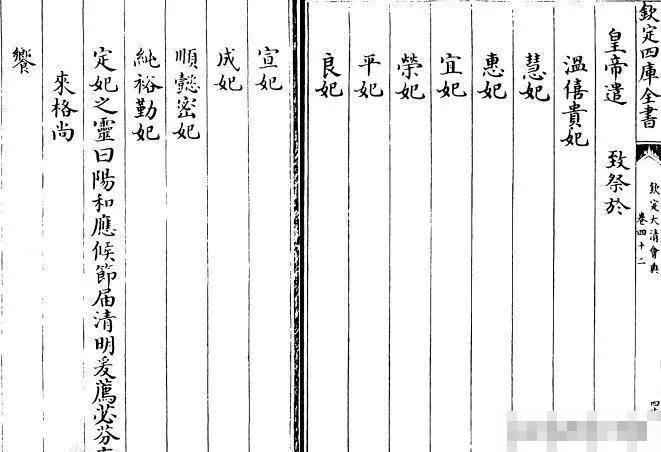 欽定四庫全書
欽定大清會典
卷四十二
皇帝遣 致祭於
溫僖貴妃
慧妃
惠妃
宜妃
榮妃
平妃
良妃
宣妃
成妃
順懿密妃
純裕勤妃
定妃之靈曰陽和應候節届清明爰薦苾芬
來格尚
饗